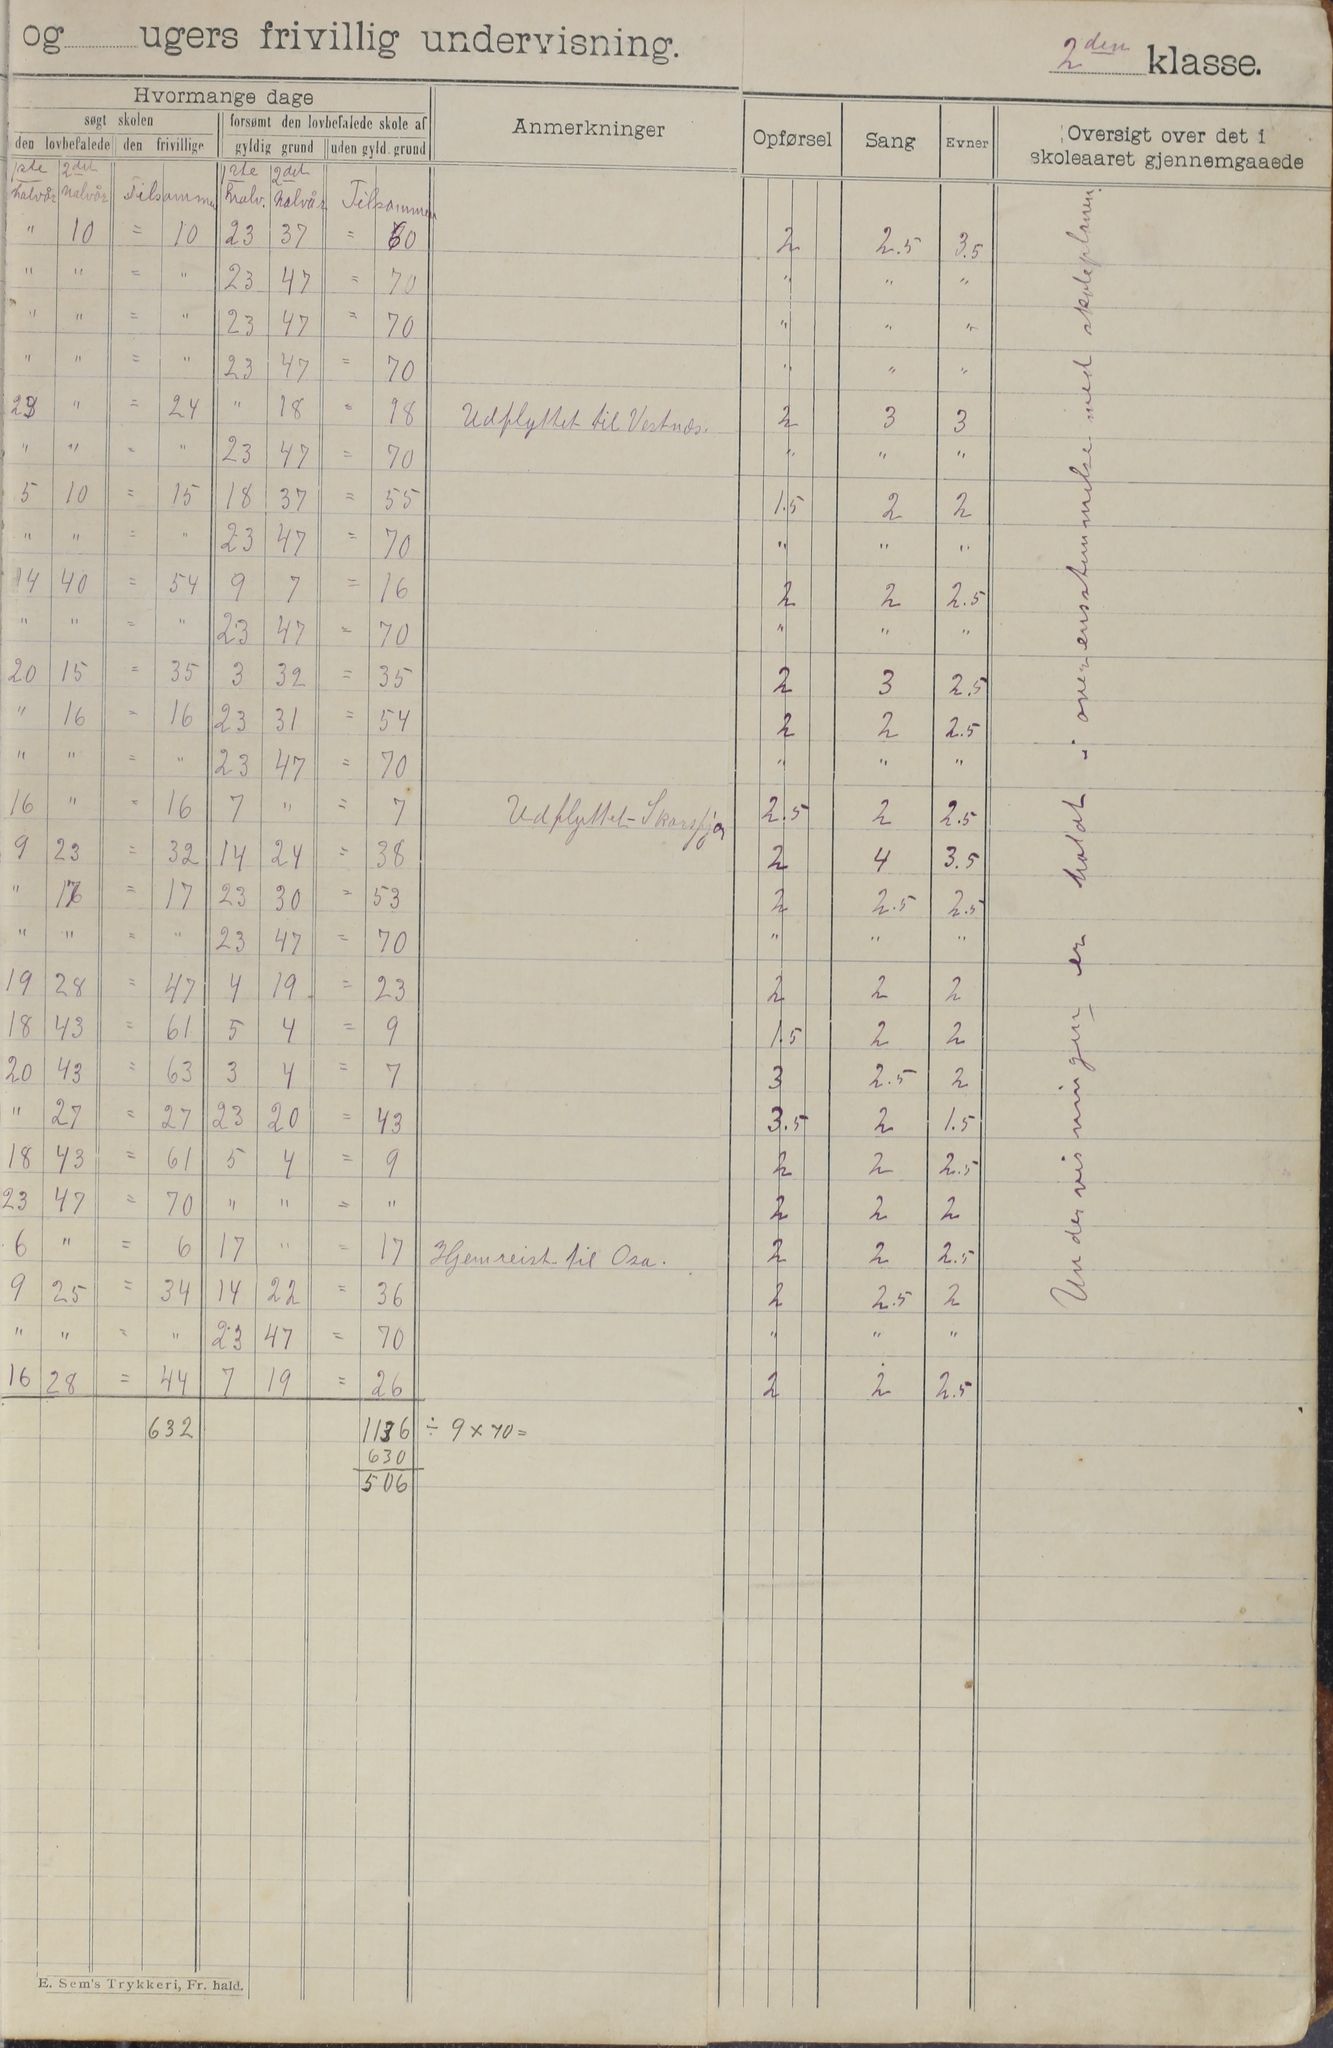 og ugers frivillig undervisning.
2den klasse.
Hvormange dage
søgt skolen
forsømt den lovbefalede skole af
den lovbefalede den frivillige
gyldig grund uden gyld. grund
Anmerkninger
Opførsel Sang Evner
Oversigt over det i
skoleaaret gjennemgaaede
1ste halvår 2det halvår Tilsammen 1ste halv. 2det halvår Tilsammen
" 10 = 10 23 37 = 60 2 2.5 3.5
" " = " 23 47 = 70 " " "
" " = " 23 47 = 70 " " "
" " = " 23 47 = 70 " " "
" = 24 " 18 = 18 Udflyttet til Vestnes. 2 3 3
" " = " 23 47 = 70 " " "
5 10 = 15 18 37 = 55 1.5 2 2
" " = " 23 47 = 70 " " "
14 40 = 54 9 7 = 16 2 2 2.5
" " = " 23 47 = 70 " " "
20 15 = 35 3 32 = 35 2 3 2.5
" 16 = 16 23 31 = 54 2 2 2.5
" " = " 23 47 = 70 " " "
16 " = 16 7 " = 7 Udflyttet 2.5 2 2.5
9 23 = 32 14 24 = 38 2 4 3.5
" = 17 23 30 = 53 2 2.5 2.5
" " = " 23 47 = 70 " " "
19 28 = 47 4 19 = 23 2 2 2
18 43 = 61 5 4 = 9 1.5 2 2
20 43 = 63 3 4 = 7 3 2.5 2
" 27 = 27 23 20 = 43 3.5 2 1.5
18 43 = 61 5 4 = 9 2 2 2.5
23 47 = 70 " " = " 2 2 2
6 " = 6 17 " = 17 Hjemreist til Osa. 2 2 2.5
9 25 = 34 14 22 = 36 2 2.5 2
" " = " 23 47 = 70 " " "
16 28 = 44 7 19 = 26 2 2 2.5
632 1136 ÷ 9 x 70 =
630
506
Undervisningen er holdt i overensstemmelse med skoleplanen.
E. Sem's Trykkeri, Fr. hald.